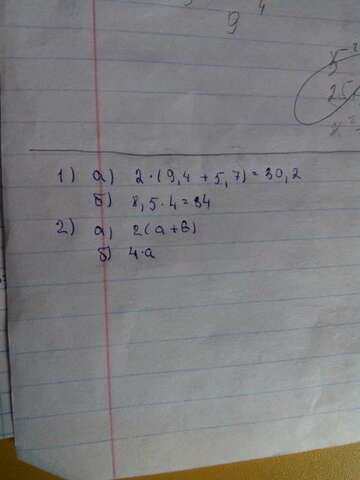 9 4
5²
25
1) а) 2·(9,4 + 5,7) = 30,2
б) 8,5·4 = 34
2) а) 2(а+в)
б) 4·а